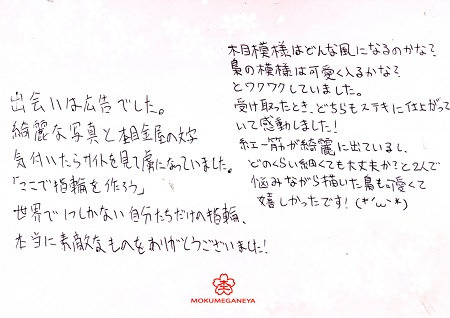 出会いは広告でした。
綺麗な写真と杢目金屋の文字
気付いたらサイトを見て虜になっていました。
「ここで指輪を作ろう」
世界で1つしかない自分たちだけの指輪、
本当に素敵なものをありがとうございました!
木目模様はどんな風になるのかな?
梟の模様は可愛く入るかな?
とワクワクしていました。
受け取ったとき、どちらもステキに仕上がって
いて感動しました!
紅一筋が綺麗に出ているし、
どのくらい細くても大丈夫か?と2人で
悩みながら描いた梟も可愛くて
嬉しかったです!(*'ω'*)
MOKUMEGANEYA